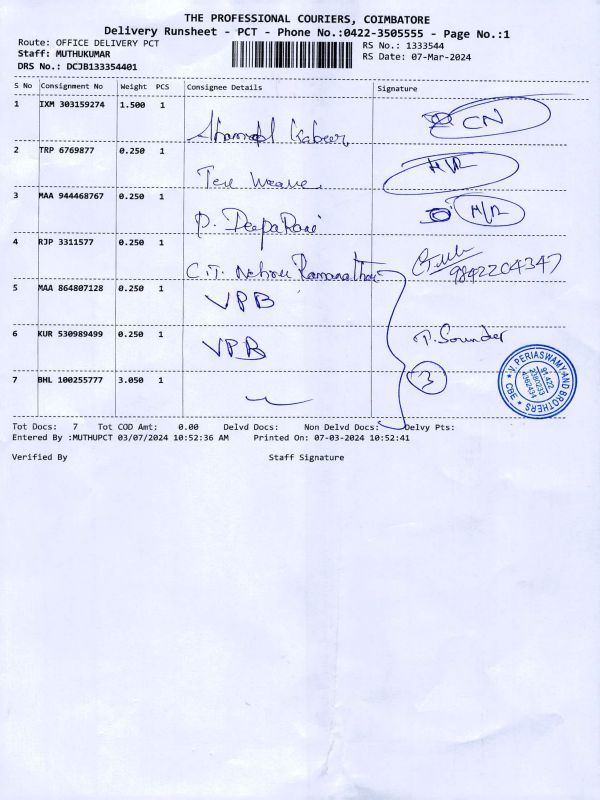 THE PROFESSIONAL COURIERS, COIMBATORE
Delivery Runsheet - PCT - Phone No.:0422-3505555 - Page No.:1
Route: OFFICE DELIVERY PCT
RS No.: 1333544
Staff: MUTHUKUMAR
RS Date: 07-Mar-2024
DRS No.: DCJB133354401
S No Consignment No Weight PCS Consignee Details Signature
1 IXM 303159274 1.500 1
Kabeer CN
2 TRP 6769877 0.250 1
3 MAA 944468767 0.250 1
P. DeepaRani
4 RJP 3311577 0.250 1
C.T. Ramanathan 9842204347
5 MAA 864807128 0.250 1
VPB
6 KUR 530989499 0.250 1
VPB P. Sounder
7 BHL 100255777 3.050 1
3
V. PERIASWAMY AND BROTHERS * CBE *
Tot Docs: 7 Tot COD Amt: 0.00 Delvd Docs: Non Delvd Docs: Delvy Pts:
Entered By :MUTHUPCT 03/07/2024 10:52:36 AM Printed On: 07-03-2024 10:52:41
Verified By Staff Signature